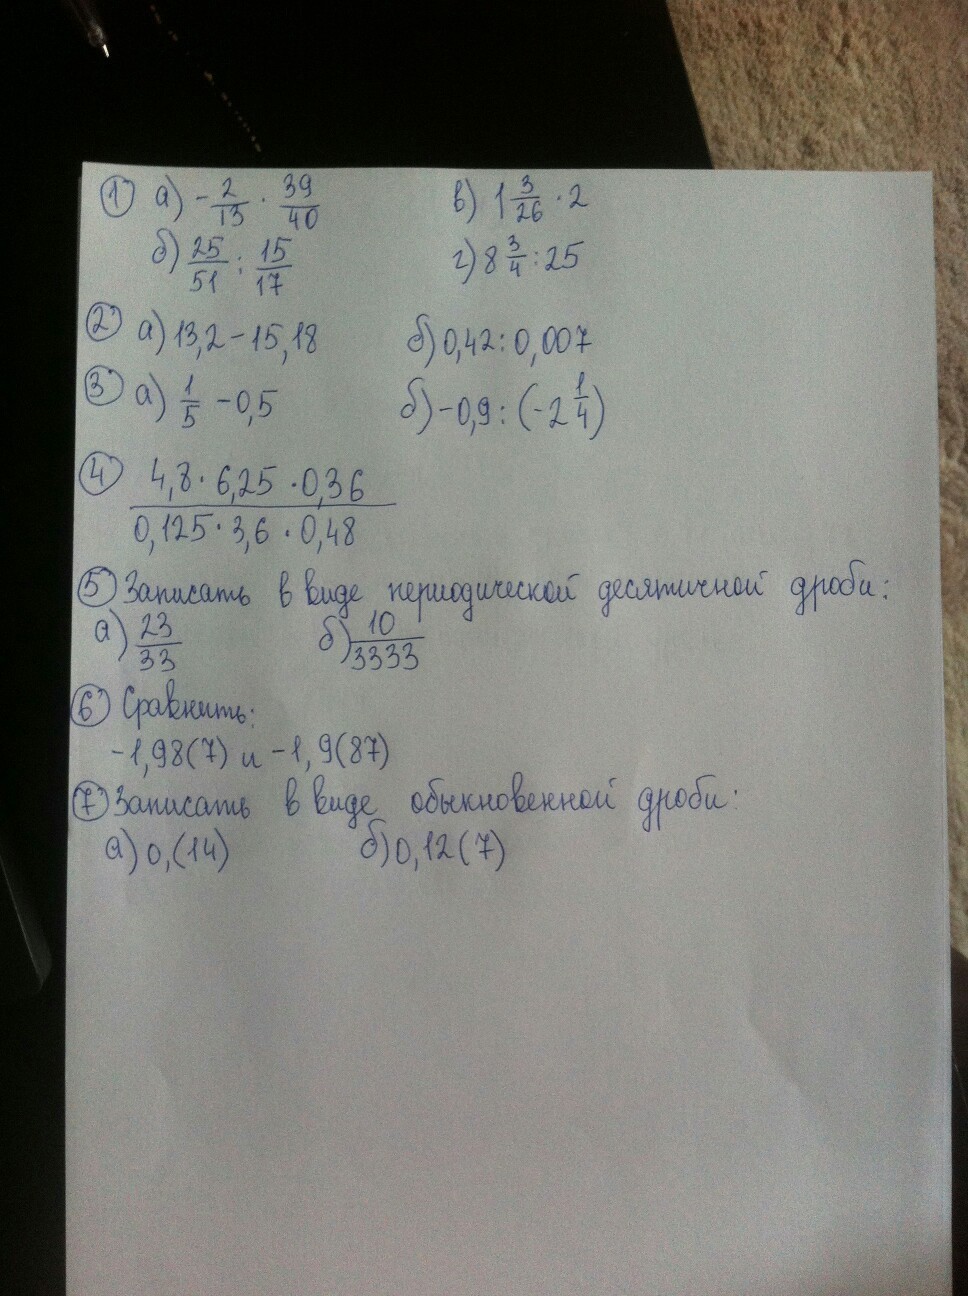 1) а) -2/13 · 39/40 в) 1 3/26 · 2
б) 25/51 : 15/17 г) 8 3/4 : 25
2) а) 13,2 - 15,18 б) 0,42 : 0,007
3) а) 1/5 - 0,5 б) -0,9 : (-2 1/4)
4) 4,8 · 6,25 · 0,36
0,125 · 3,6 · 0,48
5) Записать в виде периодической десятичной дроби:
а) 23/33 б) 10/3333
6) Сравнить:
-1,98(7) и -1,9(87)
7) Записать в виде обыкновенной дроби:
а) 0,(14) б) 0,12(7)